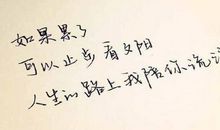 如果累了
可以止步看夕阳
人生的路上我陪你说说